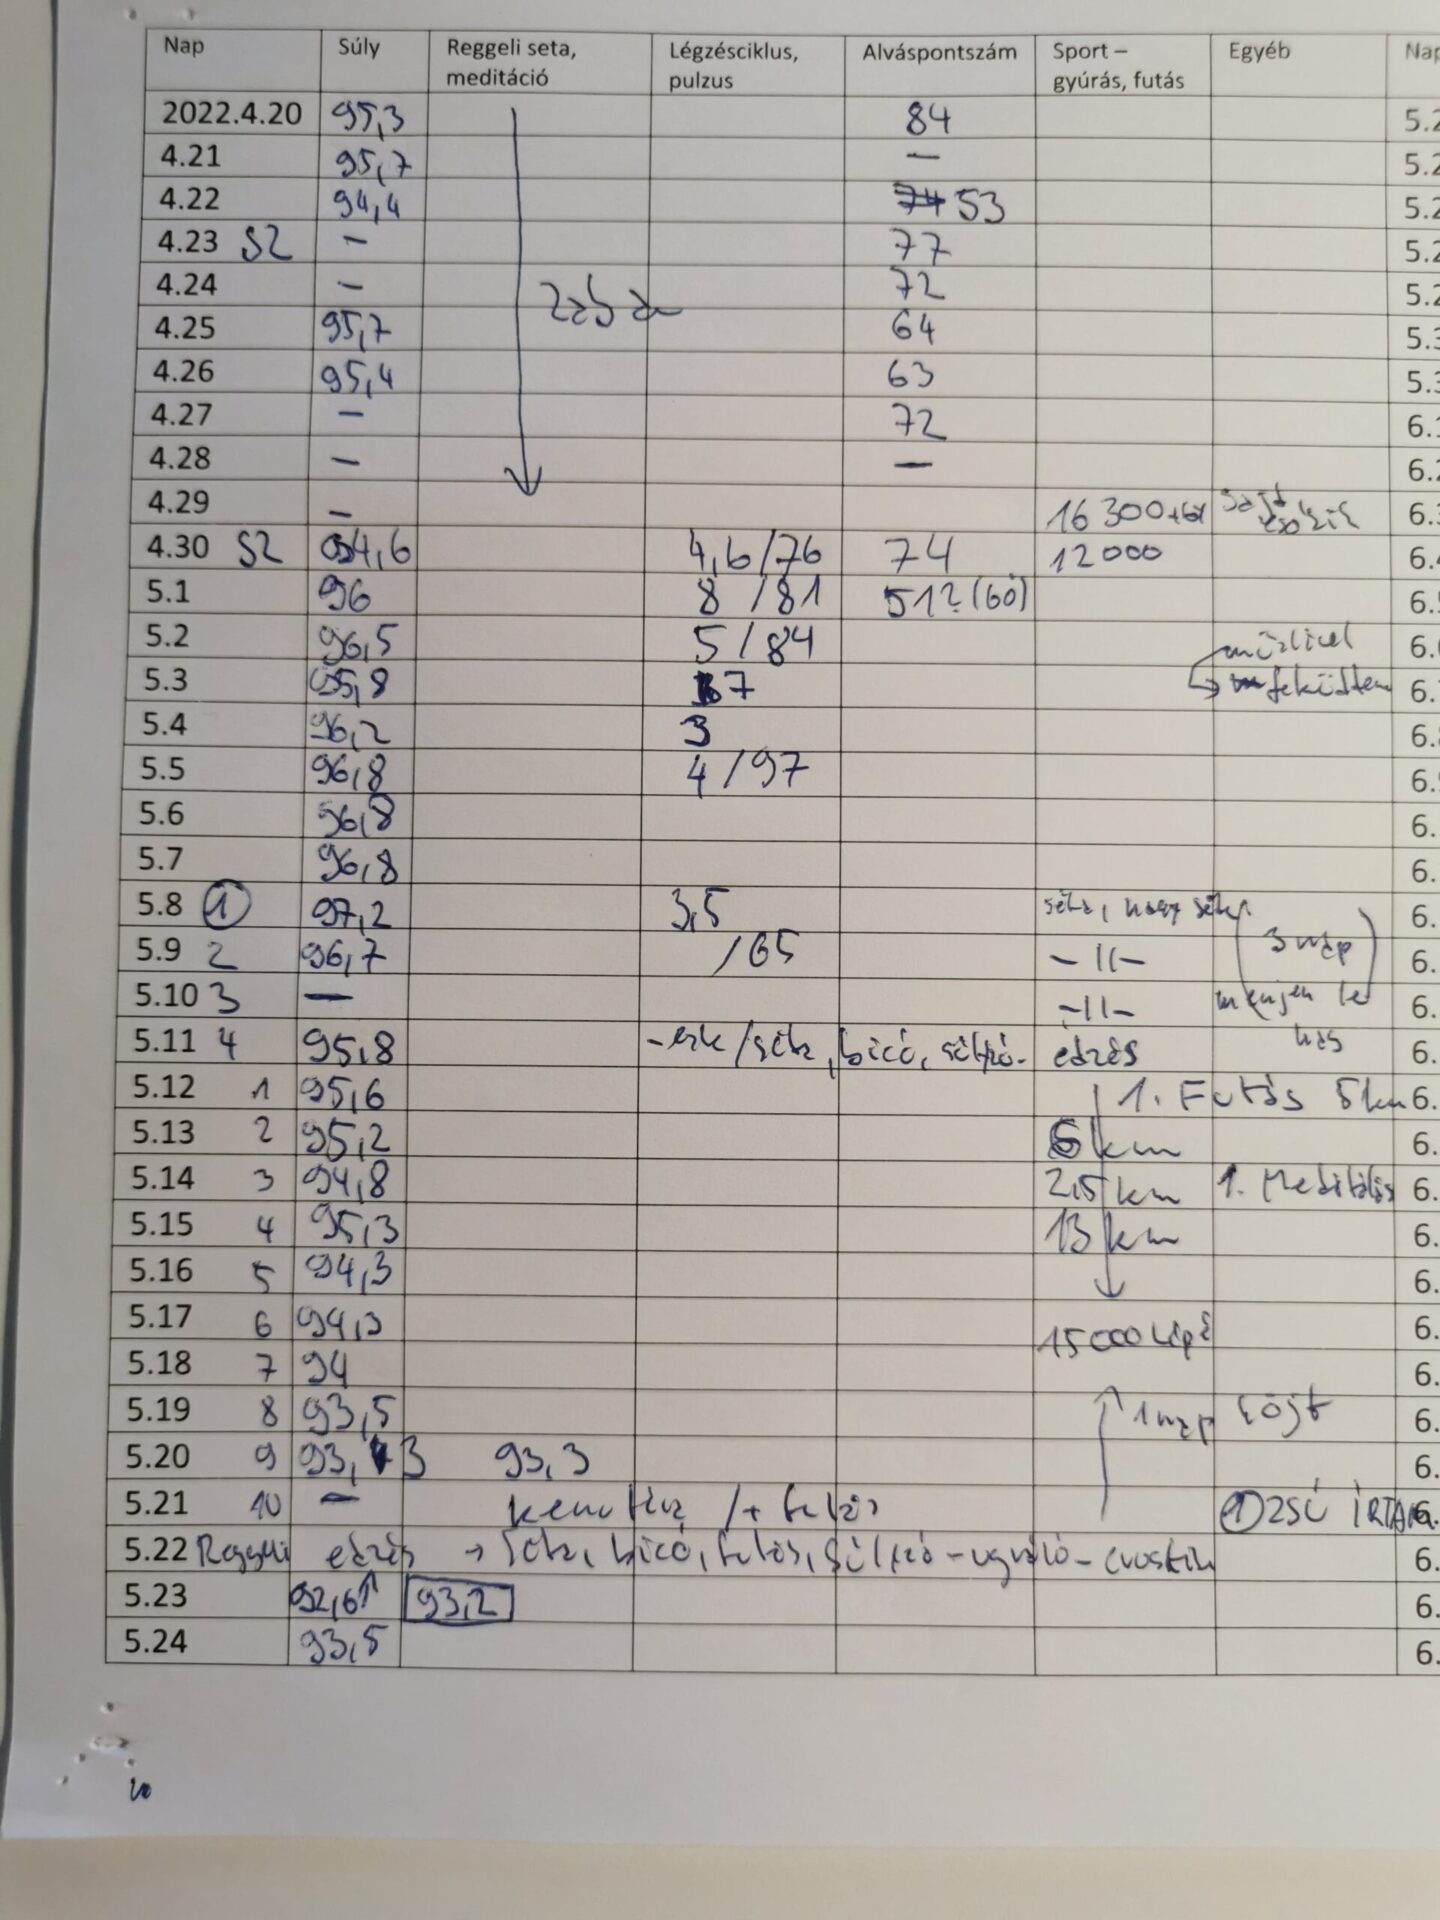 Nap Súly Reggeli seta, meditáció Légzésciklus, pulzus Alváspontszám Sport – gyúrás, futás Egyéb Nap
2022.4.20 95,3 84 5.2
4.21 95,7 — 5.2
4.22 94,4 74 53 5.2
4.23 SZ – 77 5.2
4.24 – 72 5.2
4.25 95,7 64 5.3
4.26 95,4 63 5.3
4.27 – 72 6.1
4.28 – — 6.2
4.29 – 16 300 6.3
4.30 SZ 94,6 4,6/76 74 12000 6.4
5.1 96 8 /81 51? (60) 6.5
5.2 96,5 5 / 84 müzlivel 6.
5.3 95,8 7 feküdtem 6.
5.4 96,2 3 6.
5.5 96,8 4 /97 6.
5.6 96,8 6.
5.7 96,8 6.
5.8 1 97,2 3,5 séta, nagy séta 6.
5.9 2 96,7 /65 –11– 3 nap 6.
5.10 3 — –11– menjen le 6.
5.11 4 95,8 séta, bicó, edzés has 6.
5.12 1 95,6 1. Futás 5km 6.
5.13 2 95,2 6 km 6.
5.14 3 94,8 2,5 km 1. Meditálás 6.
5.15 4 95,3 13 km 6.
5.16 5 94,3 6.
5.17 6 94,3 15000 lépé 6.
5.18 7 94 6.
5.19 8 93,5 1 nap böjt 6.
5.20 9 93,3 93,3 6.
5.21 10 – / + futás 1 ZSÚ ÍRTAM 6.
5.22 Reggeli edzés → séta, bicó, futás, súlyzó – ugráló – 6.
5.23 92,6↑ 93,2 6.
5.24 93,5 6.